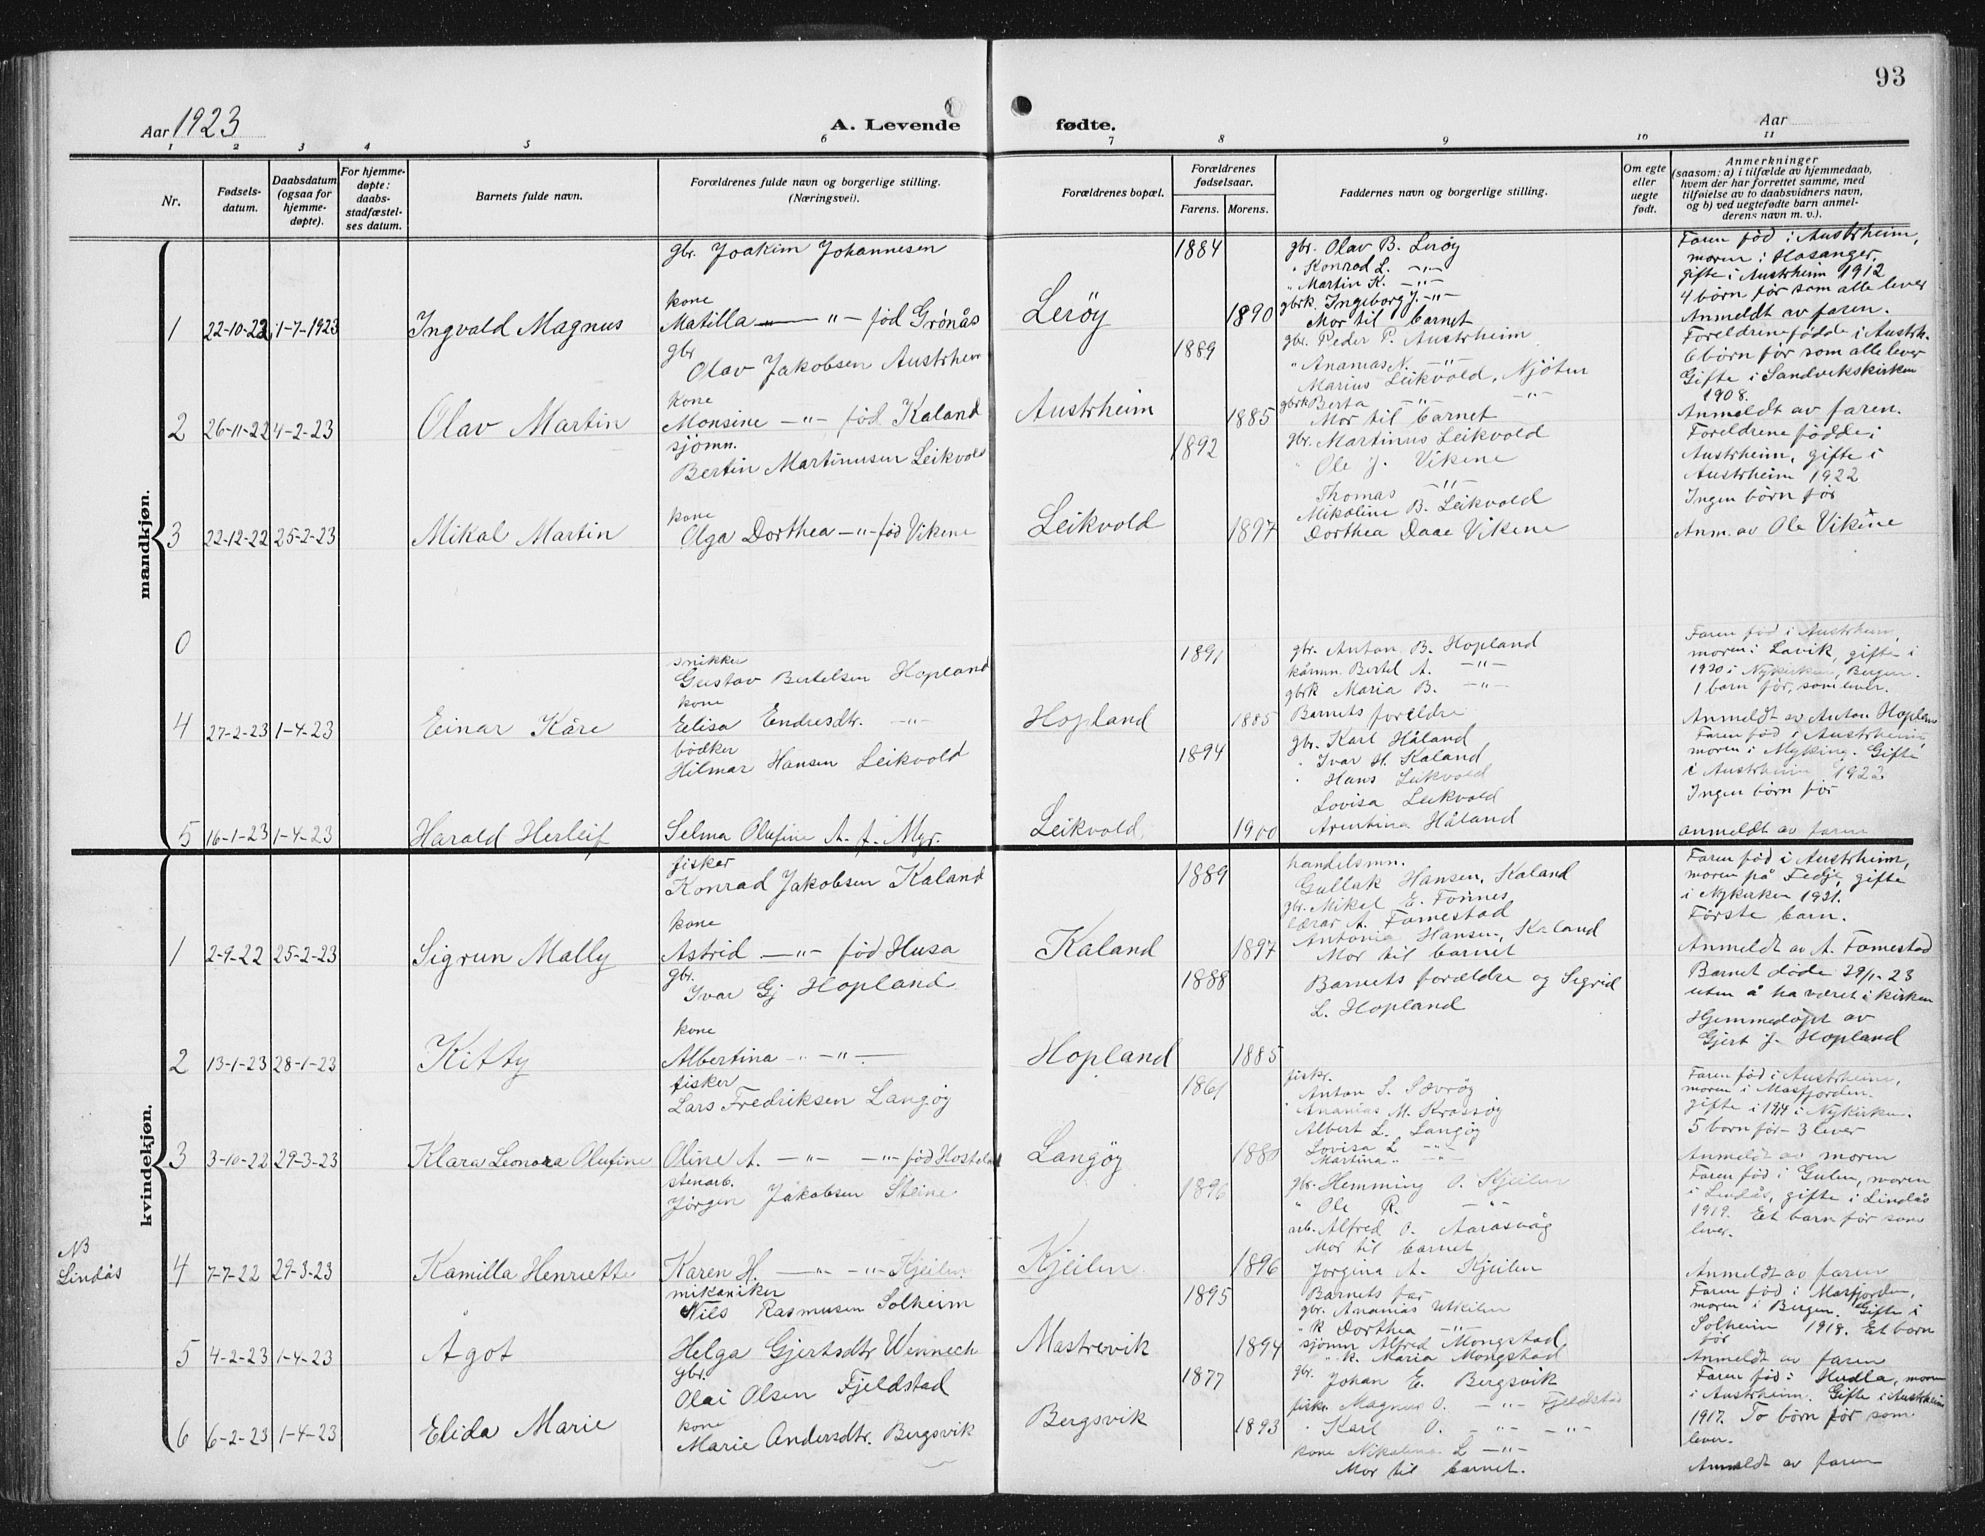 93
Aar 1923
A. Levende fødte.
Aar
1 2 3 4 5 6 7 8 9 10 11
Nr.
Fødsels-datum.
Daabsdatum (ogsaa for hjemme-døpte).
For hjemme-døpte: daabs-stadfæstel-ses datum.
Barnets fulde navn.
Forældrenes fulde navn og borgerlige stilling.
(Næringsvei).
Forældrenes bopæl.
Forældrenes fødselsaar.
Farens. Morens.
Faddernes navn og borgerlige stilling.
Om egte eller uegte født.
Anmerkninger
(saasom: a) i tilfælde av hjemmedaab,
hvem der har forrettet samme, med
tilføielse av to daabsvidners navn,
og b) ved uegtefødte barn anmel-
derens navn m. v.).
mandkjøn.
1 22-10-22 1-7-1923 Ingvald Magnus
gbr. Joakim Johannesen
kone
Matilla —— " — fød Grönås
Lerøy
1884
1890
gbr. Olav B. Lerøy
" Konrad L. -"-
" Martin K. -"-
gbrk. Ingeborg J. -"-
Mor til barnet
Faren fød i Austrheim,
moren i Hosanger,
gifte i Austrheim 1912
4 børn før som alle lever
Anmeldt av faren.
2 26-11-22 4-2-23 Olav Martin
gbr
Olav Jakobsen Austrheim
kone
Monsine -"- fød Kaland
Austrheim
1889
1885
gbr. Peder P. Austrheim
" Ananias N. -"-
Marius Leikvold, Njøten
gbrk Berta -"- -"-
Mor til barnet
Foreldrene fødde i Austrh.
6 børn før som alle lever
Gifte i Sandvikskirken
1908.
Anmeldt av faren.
3 22-12-22 25-2-23 Mikal Martin
sjömn.
Bertin Martinusen Leikvold
kone
Olga Dorthea -"- fød Vikene
Leikvold
1892
1897
gbr. Martinus Leikvold
" Ole J. Vikene
Thomas -"-
Mikoline B. Leikvold
Dorthea Daae Vikene
Foreldrene fødde i
Austrheim, gifte i
Austrheim 1922
Ingen børn før
Anm. av Ole Vikine
0
4 27-2-23 1-4-23 Einar Kåre
snikker
Gustav Bertelsen Hopland
kone
Elisa Endresdtr. -"-
Hopland
1891
1885
gbr. Anton B. Hopland
kårmn. Bertel A. -"-
gbrk Maria B. -"-
Barnets foreldre
Faren fød i Austrheim,
moren i Lavik, gifte i
1920 i Nykirken, Bergen.
1 barn før, som lever.
Anmeldt av Anton Hopland
5 16-1-23 1-4-23 Harald Herleif
bödker
Hilmar Hansen Leikvold
Selma Olufine A. f. Myr.
Leikvold
1894
1900
gbr. Karl Håland
" Ivar H. Kaland
" Hans Leikvold
Lovisa Leikvold
Arentina Håland
Faren fød i Austrheim,
moren i Myking. Gifte
i Austrheim 1922
Ingen børn før
anmeldt av faren
kvindekjøn.
1 2-9-22 25-2-23 Sigrun Mally
fisker
Konrad Jakobsen Kaland
kone
Astrid —"— fød Husa
Kaland
1889
1897
handelsmn.
Gullak Hansen, Kaland
gbr. Mikel E. Fonnes
lærar A. Fomestad
Antonia Hansen, Kaland
Mor til barnet
Faren fød i Austrheim,
moren på Fedje, gifte
i Nykirken 1921.
Første barn.
Anmeldt av A. Fomestad
2 13-1-23 28-1-23 Kitty
gbr.
Ivar Gj Hopland
kone
Albertina - "- —
Hopland
1888
1885
Barnets forældre og Sigrid
L. Hopland
Barnet døde 29/1-23
uten å ha været i kirken
Hjemmedøpt av
Gjert J. Hopland
3 3-10-22 29-3-23 Klara Leonora Olufine
fisker
Lars Fredriksen Langøy
Oline A. -"- -"- fød Hosteland
Langøy
1861
1880
fiskr.
Anton S. Sævrøy
" Ananias M. Krossøy
Albert L. Langøy
Lovisa L -"-
Martina " -"-
Faren fød i Austrheim,
moren i Masfjorden.
gifte i 1914 i Nykirken.
5 born før - 3 lever
Anmeldt av moren
NB
Lindås
4 7-7-22 29-3-23 Kamilla Henriette
stenarb.
Jörgen Jakobsen Steine
Karen H. —"— -"- Kjeilen
Kjeilen
1896
1896
gbr. Hemming O. Kjeilen
" Ole R. -"-
arb. Alfred O. Aarasvåg
Mor til barnet
Jorgina A. Kjeilen
Faren fød i Gulen, moren
i Lindås, gifte i Lindås
1919. Et barn før som
lever.
Anmeldt av faren
5 4-2-23 1-4-23 Agot
mikaniker
Nils Rasmusen Solheim
Helga Gjertsdtr Wennech
Mastrevik
1895
1894
Barnets far
gbr. Ananias Utkilen
" k Dorthea -"-
sjömn Alfred Mongstad
" k. Maria Mongstad
Faren fød i Masfjorden,
moren i Bergen. Gifte i
Solheim 1918. Et børn
før
Anmeldt av faren
6 6-2-23 1-4-23 Elida Marie
gbr.
Olai Olsen Fjeldstad
kone
Marie Andersdtr. Bergsvik
Bergsvik
1877
1893
gbr. Johan E. Bergsvik
fisk. Magnus O. -"- Fjeldstad
" Karl O. -"- -"-
kone Nikoline L -"-
Mor til barnet.
Faren fød i Hudla, moren
i Austrheim. Gifte i Austrheim
1917. To børn før som
lever.
Anmeldt av faren